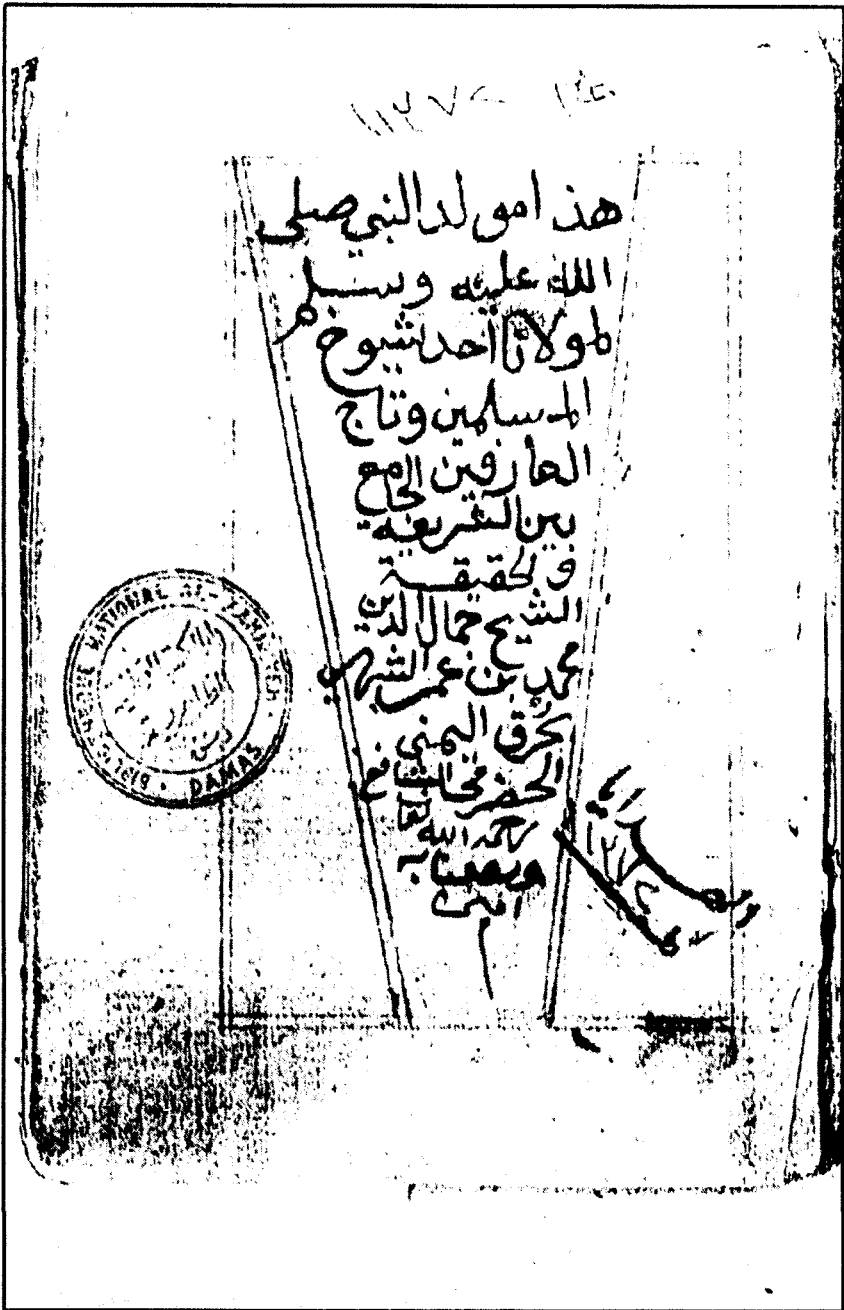 ١١٢٧٢
هذا مولد النبي صلى
الله عليه وسلم
لمولانا أحد شيوخ
المسلمين وتاج
العارفين الجامع
بين الشريعة
ولحقيقة
الشيخ جمال الدين
محمد بن عمر الشهير
بحرق اليمني
الحضرمي الشافعي
رحمه الله تعالى
ونفعنا به
امين
BIBLIOTHEQUE NATIONAL AL-ZAHIRIYEH · DAMAS
دمشق